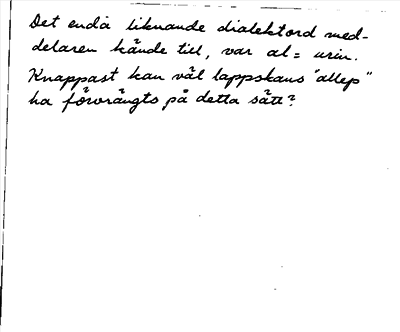 Det enda liknande dialektord med-
delaren kände till, var al = urin.
Knappast kan väl lappskans "allep"
ha förvrängts på detta sätt?